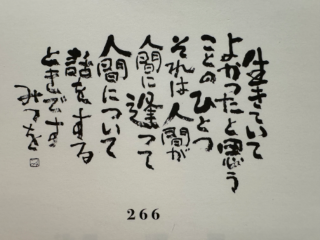 生きていて
よかったと思う
ことのひとつ
それは人間が
人間に逢って
人間について
話をする
ときです
みつを
266